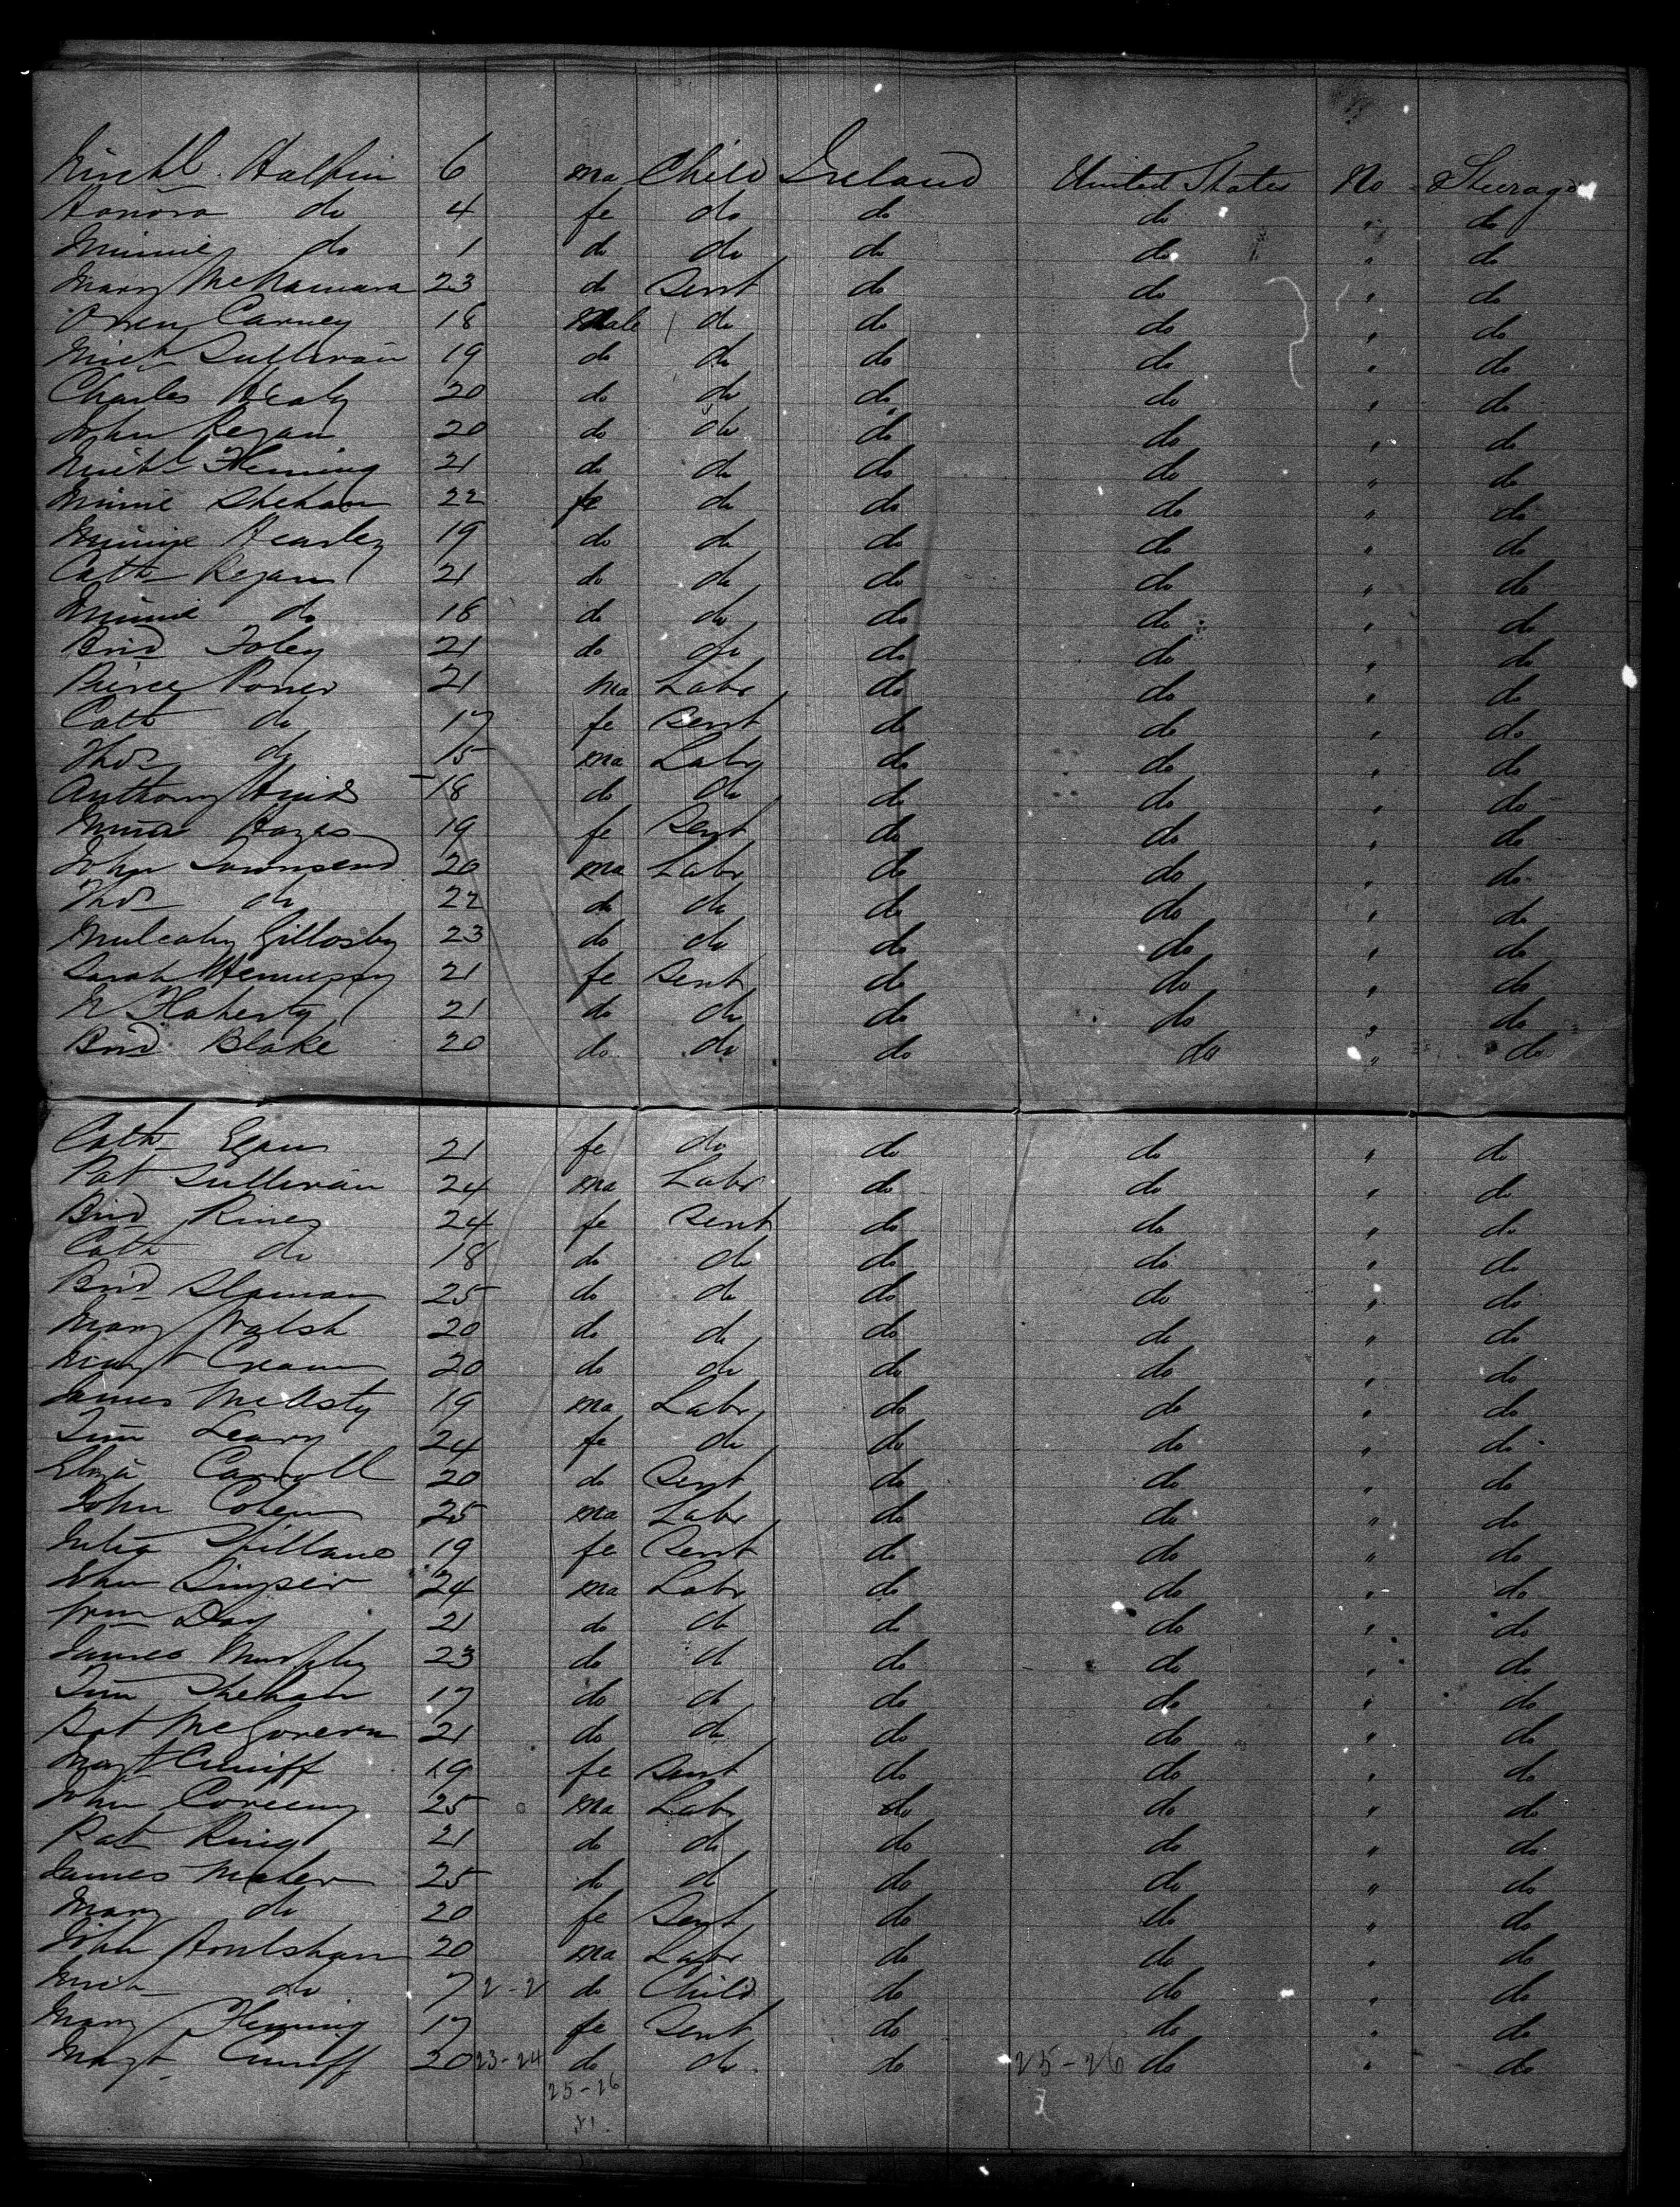 Michl Halpin 6 ma Child Ireland United States No Steerage
Honora do 4 fe do do do " do
Minnie do 1 do do do do " do
Mary McNamara 23 do Servt do do " do
Owen Carney 18 Male do do do " do
Mich Sullivan 19 do do do do " do
Charles Healy 20 do do do do " do
John Regan 20 do do do do " do
Michl Fleming 21 do do do do " do
Minnie Shehan 22 fe do do do " do
Minnie Hearley 19 do do do do " do
Cath Regan 21 do do do do " do
Minnie do 18 do do do do " do
Brid Foley 21 do do do do " do
Pierce Power 21 ma Labr do do " do
Cath do 17 fe Servt do do " do
Thos do 15 ma Labr do do " do
Anthony 18 do do do do " do
Hayes 19 fe Servt do do " do
John Townsend 20 ma Labr do do " do
Thos do 22 do do do do " do
Mulcahy Gillosby 23 do do do do " do
Sarah Hennessy 21 fe Servt do do " do
Flaherty 21 do do do do " do
Brid Blake 20 do do do do " do
Cath Egan 21 fe do do do " do
Pat Sullivan 24 ma Labr do do " do
Brid Riney 24 fe Servt do do " do
Cath do 18 do do do do " do
Brid 25 do do do do " do
Mary Walsh 20 do do do do " do
Margt Crean 20 do do do do " do
James 19 ma Labr do do " do
Tim Leary 24 fe do do do " do
Eliza Carroll 20 do Servt do do " do
John Cohen 25 ma Labr do do " do
Julia Spillane 19 fe Servt do do " do
John 24 ma Labr do do " do
Wm Day 21 do do do do " do
James Murphy 23 do do do do " do
Tim Shehan 17 do do do do " do
Pat McGovern 21 do do do do " do
Margt Cuniff 19 fe Servt do do " do
John 25 ma Labr do do " do
Pat Ring 21 do do do do " do
James Maher 25 do do do do " do
Mary do 20 fe Servt do do " do
John 20 ma Labr do do " do
Mich do 7 2-2 do Child do do " do
Mary Fleming 17 fe Servt do do " do
Margt Cuniff 20 23-24 do do do 25-26 do " do
25-26